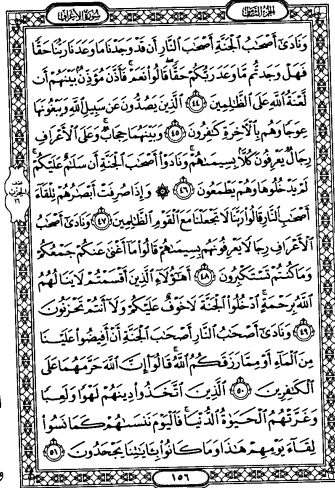 الجزء الثامن
سورة الأعراف
وَنَادَىٰ أَصْحَٰبُ ٱلْجَنَّةِ أَصْحَٰبَ ٱلنَّارِ أَن قَدْ وَجَدْنَا مَا وَعَدَنَا رَبُّنَا حَقًّا
فَهَلْ وَجَدتُّم مَّا وَعَدَ رَبُّكُمْ حَقًّا قَالُوا۟ نَعَمْ فَأَذَّنَ مُؤَذِّنٌۢ بَيْنَهُمْ أَن
لَّعْنَةُ ٱللَّهِ عَلَى ٱلظَّٰلِمِينَ ٤٤ ٱلَّذِينَ يَصُدُّونَ عَن سَبِيلِ ٱللَّهِ وَيَبْغُونَهَا
عِوَجًا وَهُم بِٱلْءَاخِرَةِ كَٰفِرُونَ ٤٥ وَبَيْنَهُمَا حِجَابٌ وَعَلَى ٱلْأَعْرَافِ
رِجَالٌ يَعْرِفُونَ كُلًّۢا بِسِيمَىٰهُمْ وَنَادَوْا۟ أَصْحَٰبَ ٱلْجَنَّةِ أَن سَلَٰمٌ عَلَيْكُمْ
لَمْ يَدْخُلُوهَا وَهُمْ يَطْمَعُونَ ٤٦ ۞ وَإِذَا صُرِفَتْ أَبْصَٰرُهُمْ تِلْقَآءَ
أَصْحَٰبِ ٱلنَّارِ قَالُوا۟ رَبَّنَا لَا تَجْعَلْنَا مَعَ ٱلْقَوْمِ ٱلظَّٰلِمِينَ ٤٧ وَنَادَىٰٓ أَصْحَٰبُ
ٱلْأَعْرَافِ رِجَالًا يَعْرِفُونَهُم بِسِيمَىٰهُمْ قَالُوا۟ مَآ أَغْنَىٰ عَنكُمْ جَمْعُكُمْ
وَمَا كُنتُمْ تَسْتَكْبِرُونَ ٤٨ أَهَٰٓؤُلَآءِ ٱلَّذِينَ أَقْسَمْتُمْ لَا يَنَالُهُمُ
ٱللَّهُ بِرَحْمَةٍ ٱدْخُلُوا۟ ٱلْجَنَّةَ لَا خَوْفٌ عَلَيْكُمْ وَلَآ أَنتُمْ تَحْزَنُونَ
٤٩ وَنَادَىٰٓ أَصْحَٰبُ ٱلنَّارِ أَصْحَٰبَ ٱلْجَنَّةِ أَنْ أَفِيضُوا۟ عَلَيْنَا
مِنَ ٱلْمَآءِ أَوْ مِمَّا رَزَقَكُمُ ٱللَّهُ قَالُوٓا۟ إِنَّ ٱللَّهَ حَرَّمَهُمَا عَلَى
ٱلْكَٰفِرِينَ ٥٠ ٱلَّذِينَ ٱتَّخَذُوا۟ دِينَهُمْ لَهْوًا وَلَعِبًا
وَغَرَّتْهُمُ ٱلْحَيَوٰةُ ٱلدُّنْيَا فَٱلْيَوْمَ نَنسَىٰهُمْ كَمَا نَسُوا۟
لِقَآءَ يَوْمِهِمْ هَٰذَا وَمَا كَانُوا۟ بِـَٔايَٰتِنَا يَجْحَدُونَ ٥١
١٥٦